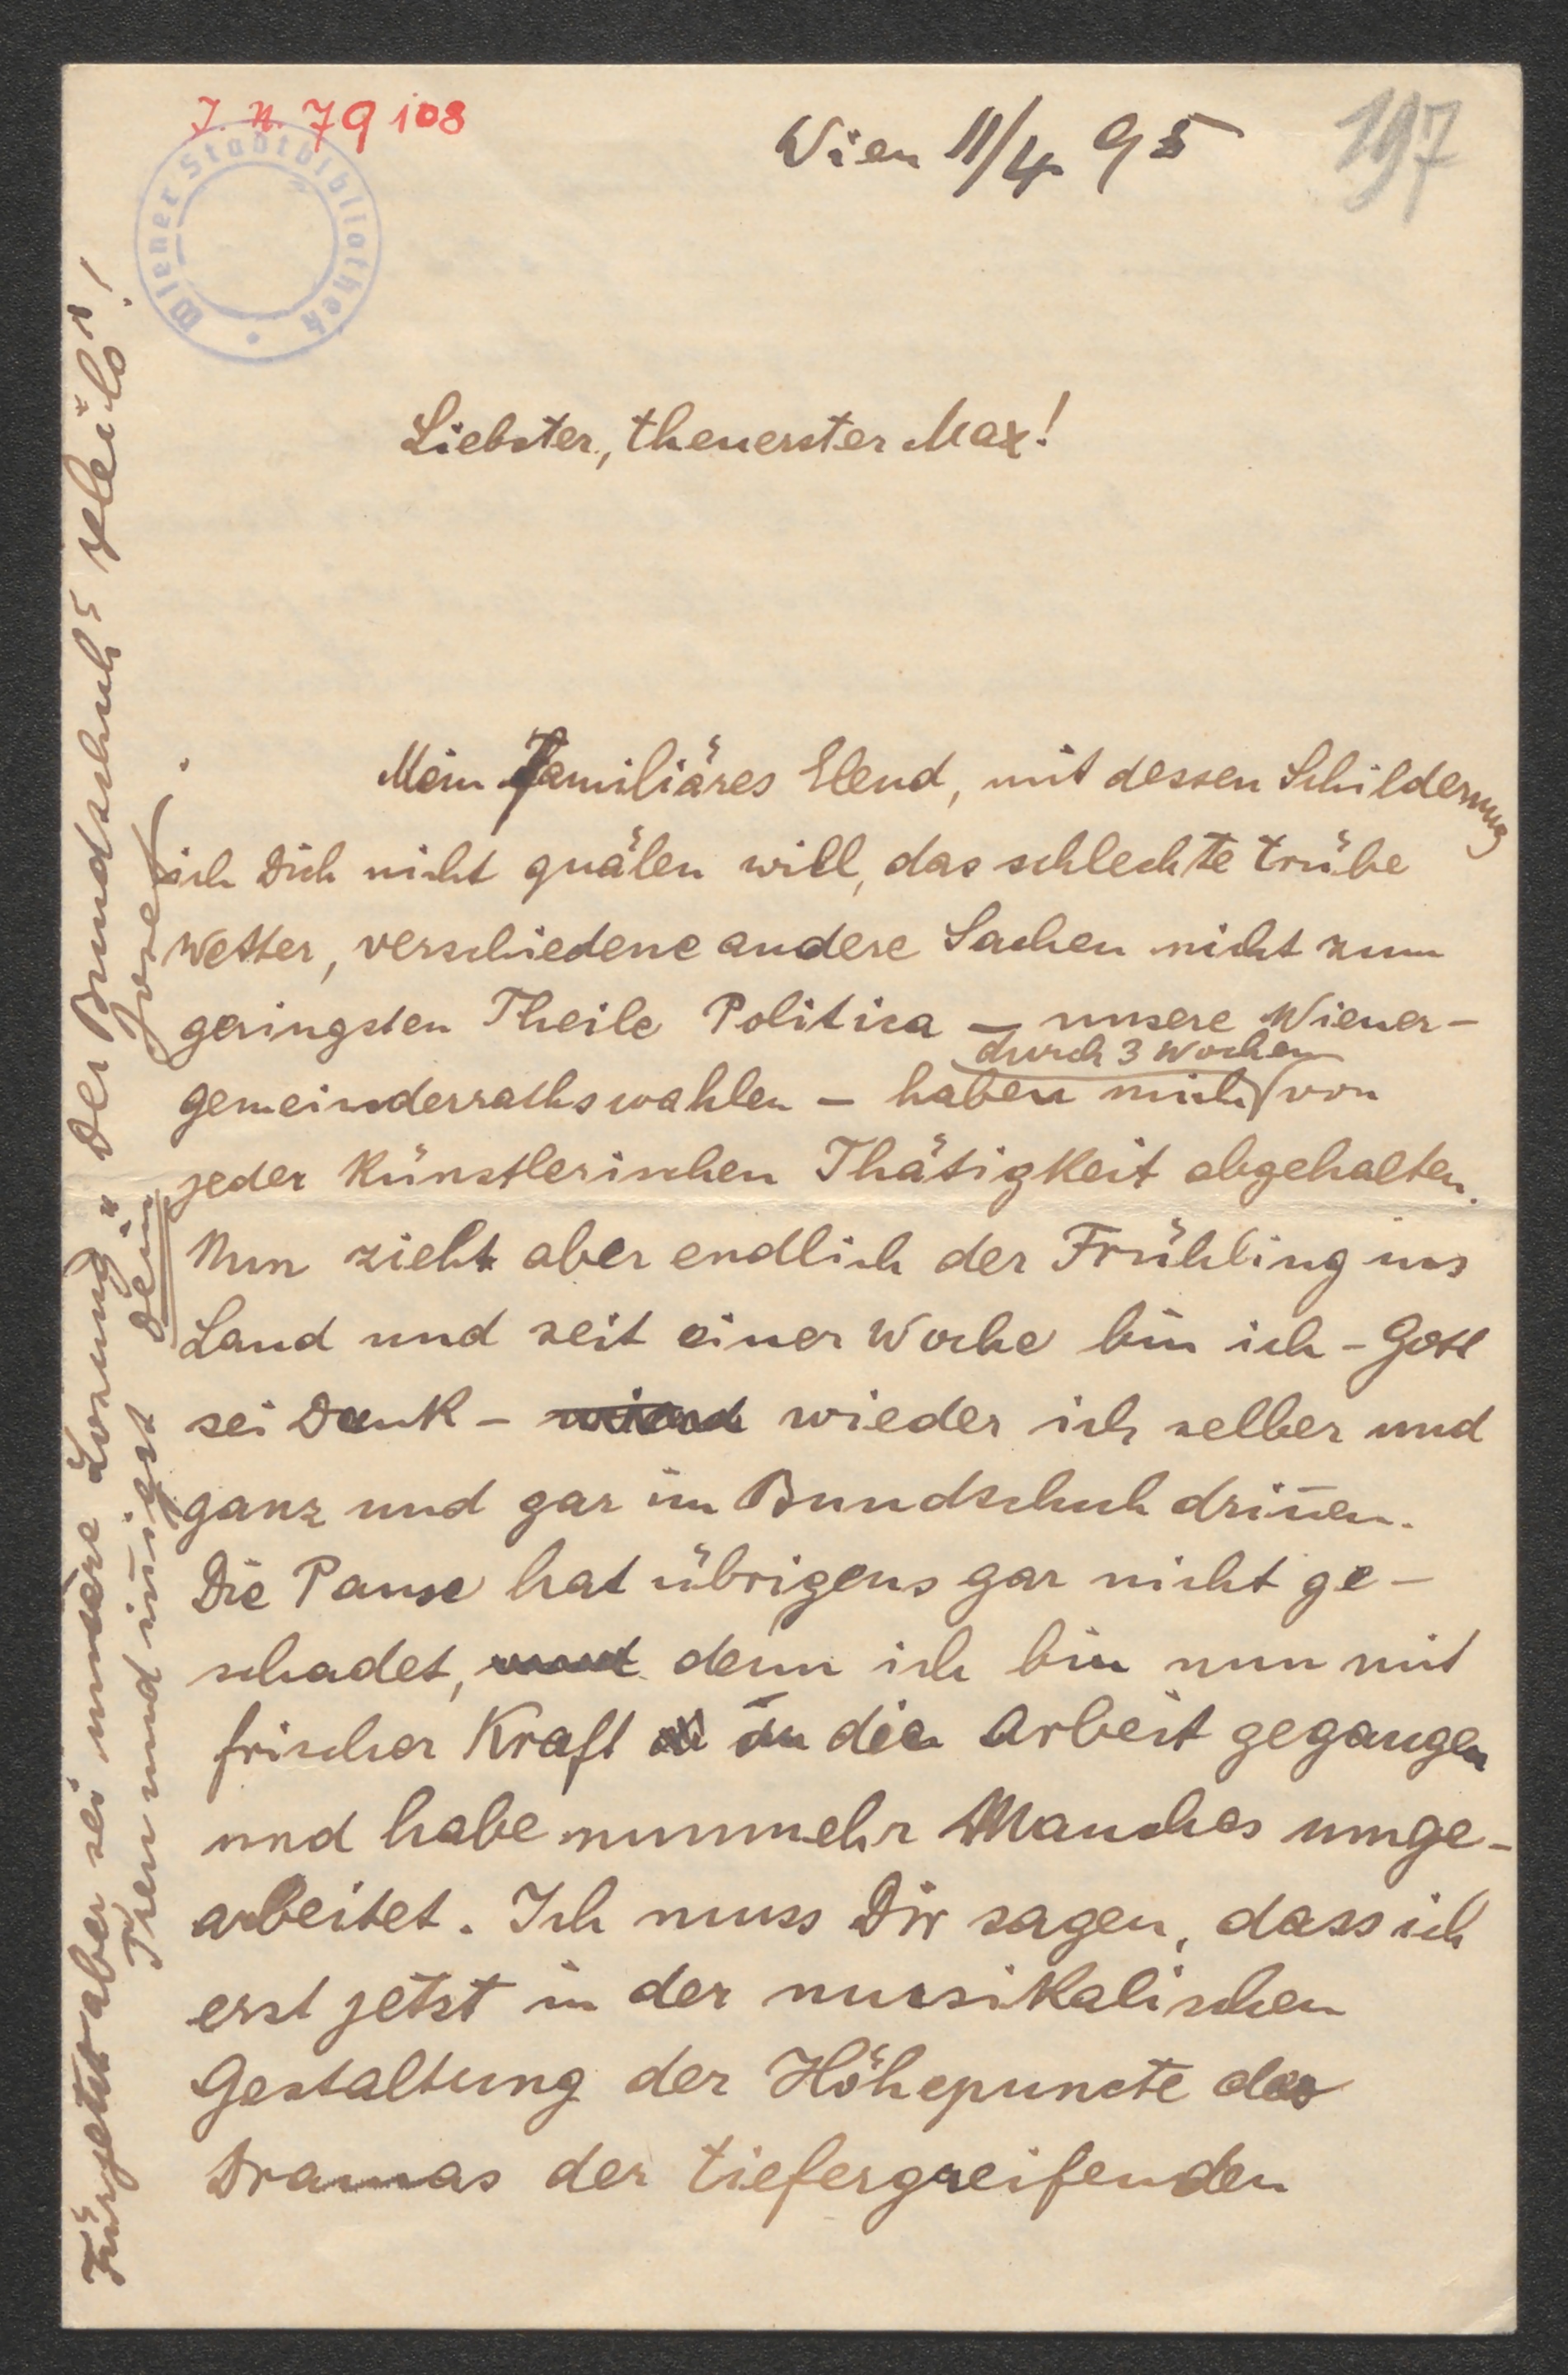 J. N. 79108
Wiener Stadtbibliothek
Wien 11/4 95
197
Liebster, theuerster Max!
Mein Familiäres Elend, mit dessen Schilderung
ich Dich nicht quälen will, das schlechte trübe
Wetter, verschiedene andere Sachen nicht zum
geringsten Theile Politica – unsere Wiener-
durch 3 Wochen
gemeinderrathswahlen – haben mich von
jeder Künstlerischen Thätigkeit abgehalten.
Nun zieht aber endlich der Frühling ins
Land und seit einer Woche bin ich – Gott
sei Dank – wieder ich selber und
ganz und gar im Bundschuh driñen.
Die Pause hat übrigens gar nicht ge-
schadet, und denn ich bin nun mit
frischer Kraft an die Arbeit gegangen
und habe nunmehr Manches umge-
arbeitet. Ich muss Dir sagen, dass ich
erst jetzt in der musikalischen
Gestaltung der Höhepuncte des
Dramas der tiefergreifenden
Für jetzt aber sei unsere Losung: „Der Bundschuh" Heil!
Treu und iñigst Dein Josef.